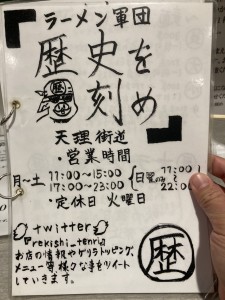 ラーメン軍団
歴史を
刻め
天理街道
・営業時間
月～土 11:00～15:00
17:00～23:00
日曜のみ 11:00
～
22:00
・定休日 火曜日
twitter
『rekishi_tenri』
お店の情報やゲリラトッピング、
メニュー等様々な事をツイート
していきます。
歴